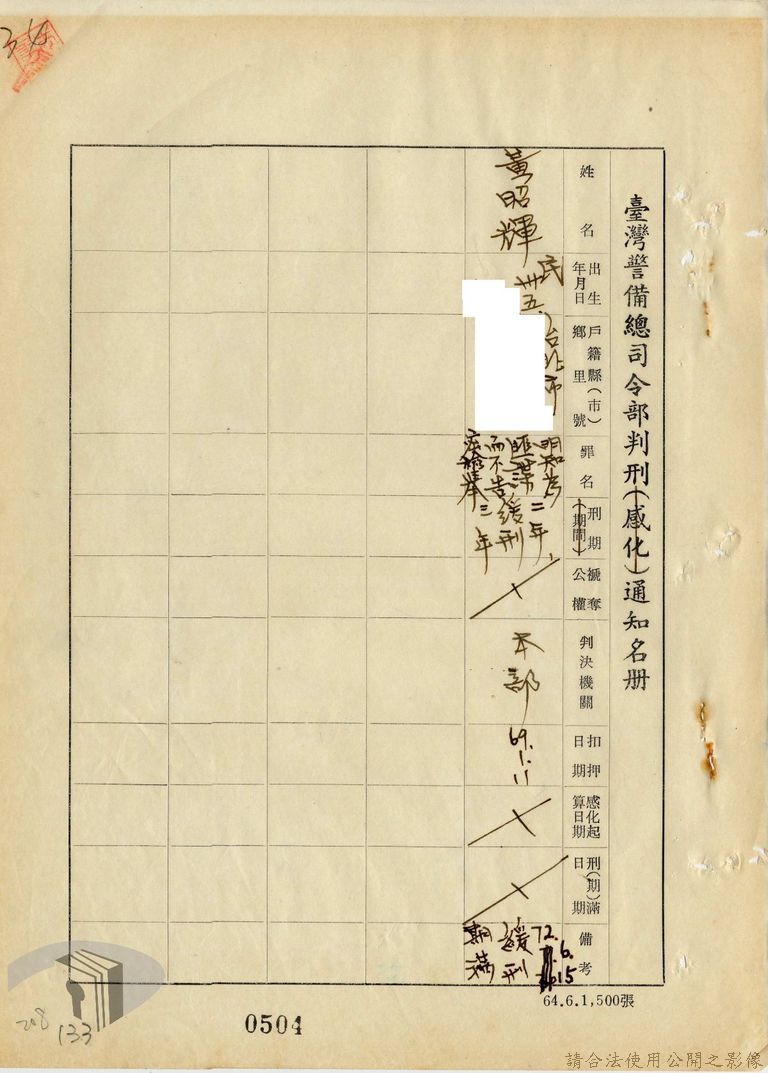 臺灣警備總司令部判刑(感化)通知名册
姓名
黃昭輝
出生年月日
民卅五
戶籍縣(市)鄉里號
台北市
罪名
明知為匪諜而不告密檢舉
刑期(期間)
二年,緩刑三年
褫奪公權
判決機關
本部
扣押日期
69.1.11
感化起算日期
刑(期)滿日期
備考
72.6.15
緩刑
期滿
64.6.1,500張
0504
208
133
請合法使用公開之影像